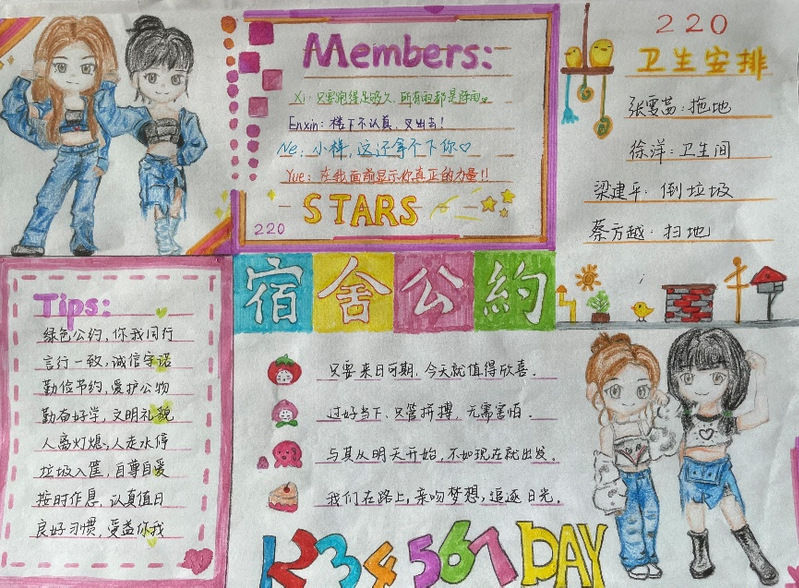 Members:
Xi: 只要跑得足够久,所有雨都是阵雨。
Enxin: 楼下不认真,叉出去!
Ne: 小样,这还拿不下你♡
Yue: 在我面前显示你真正的力量!!
STARS
220
220
卫生安排
张雯茜:拖地
徐洋:卫生间
梁建平:倒垃圾
蔡方越:扫地
宿舍公約
Tips:
绿色公约,你我同行
言行一致,诚信守诺
勤俭节约,爱护公物
勤奋好学,文明礼貌
人离灯熄,人走水停
垃圾入筐,自尊自爱
按时作息,认真值日
良好习惯,受益你我
只要来日可期,今天就值得欣喜.
过好当下,只管拼搏,无需害怕.
与其从明天开始,不如现在就出发.
我们在路上,亲吻梦想,追逐日光.
1234567 DAY